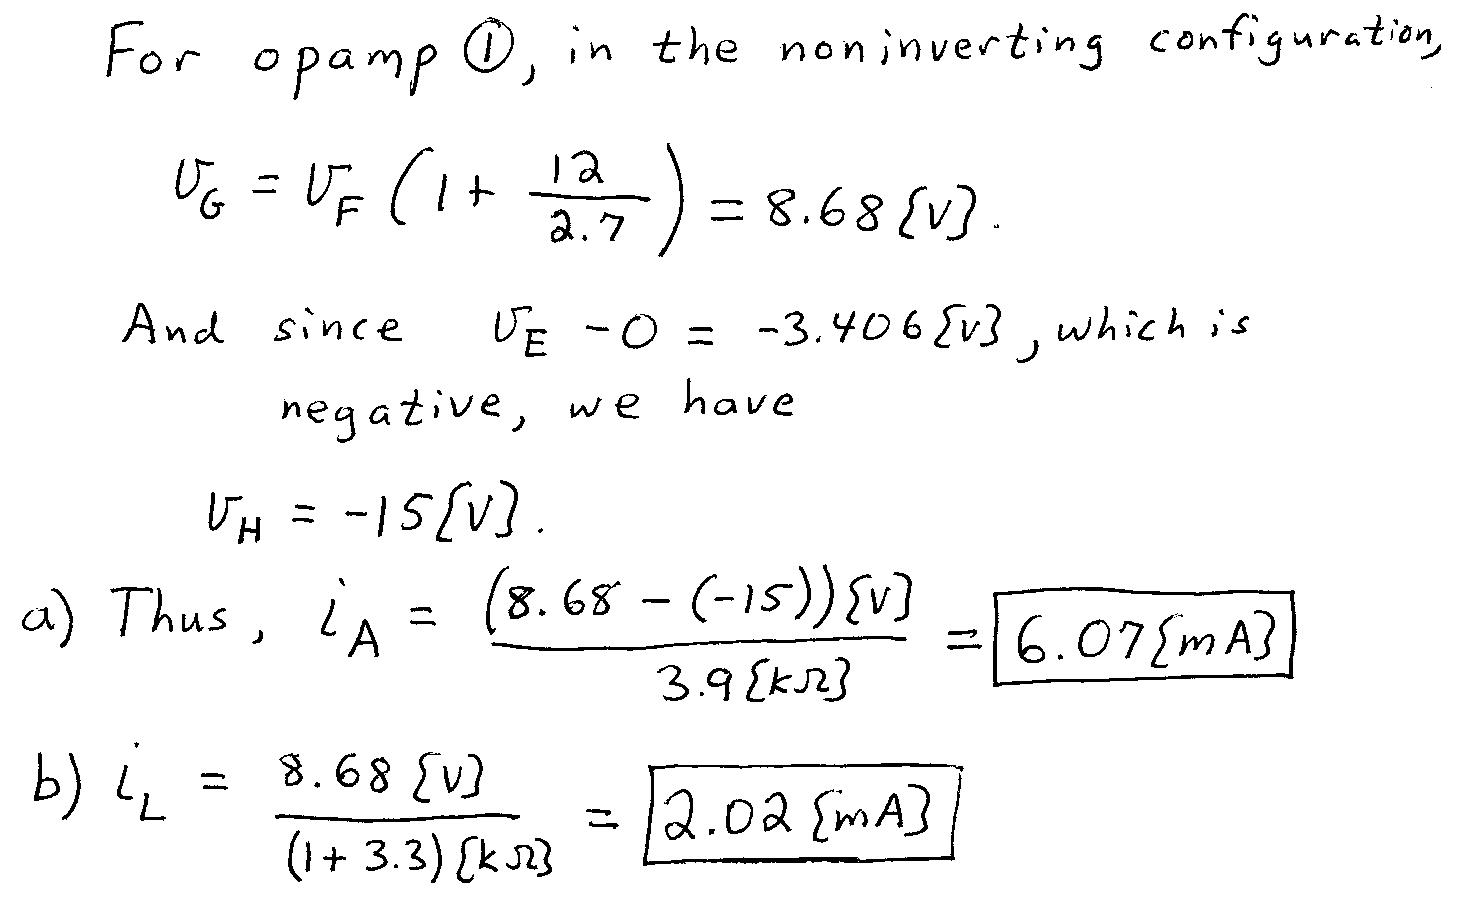 For opamp ①, in the noninverting configuration,
v_G = v_F (1 + 12/2.7) = 8.68 {V}.
And since v_E - 0 = -3.406 {V}, which is
negative, we have
v_H = -15 {V}.
a) Thus, i_A = (8.68 - (-15)) {V} / 3.9 {kΩ} = 6.07 {mA}
b) i_L = 8.68 {V} / (1 + 3.3) {kΩ} = 2.02 {mA}